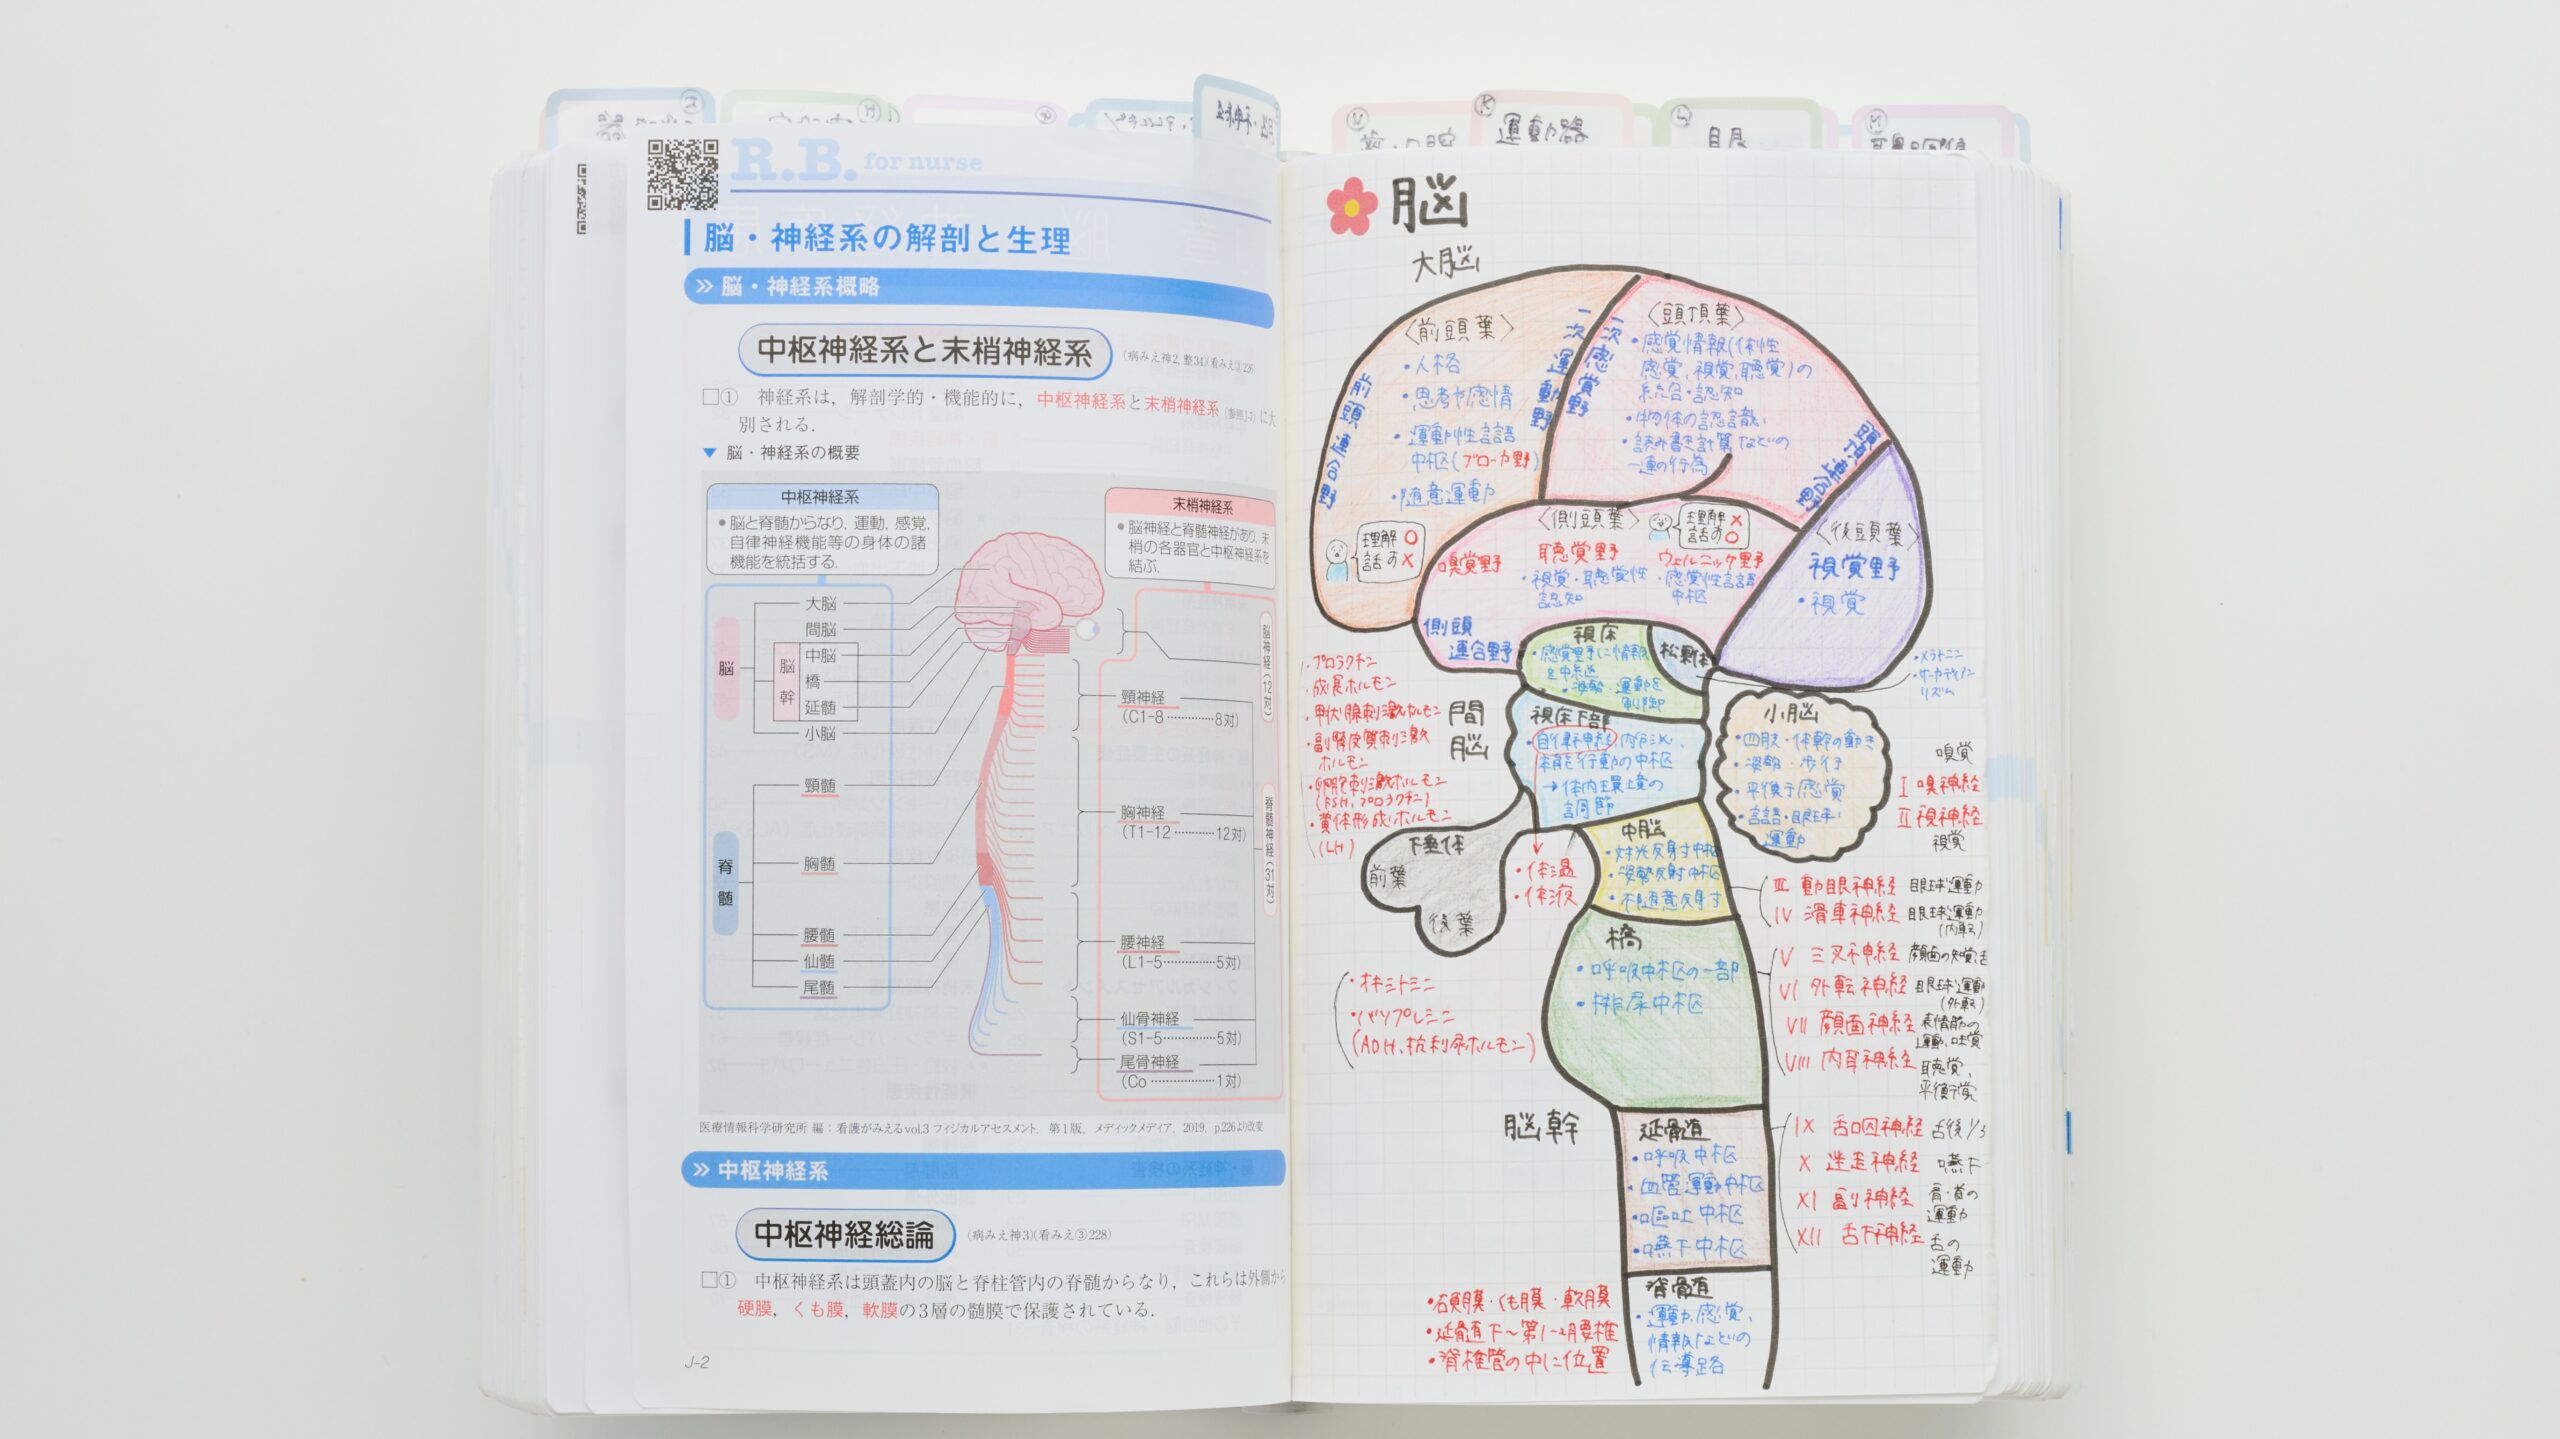 歯・口腔
運動器
眼
R.B. for nurse
脳・神経系の解剖と生理
脳・神経系概略
中枢神経系と末梢神経系
(病みえ神2, 整34)(看みえ③226)
□① 神経系は，解剖学的・機能的に，中枢神経系と末梢神経系(参照J-7)に大
別される．
▼ 脳・神経系の概要
中枢神経系
●脳と脊髄からなり，運動，感覚，
自律神経機能等の身体の諸
機能を統括する．
末梢神経系
●脳神経と脊髄神経があり，末
梢の各器官と中枢神経系を
結ぶ．
脳
大脳
間脳
脳幹
中脳
橋
延髄
小脳
脊髄
頸髄
胸髄
腰髄
仙髄
尾髄
脳神経(12対)
脊髄神経(31対)
頸神経
(C1-8 ………… 8対)
胸神経
(T1-12 ………… 12対)
腰神経
(L1-5 ………… 5対)
仙骨神経
(S1-5 ………… 5対)
尾骨神経
(Co ………… 1対)
医療情報科学研究所 編：看護がみえるvol.3 フィジカルアセスメント，第1版，メディックメディア，2019，p.226より改変
中枢神経系
中枢神経総論
(病みえ神3)(看みえ③228)
□① 中枢神経系は頭蓋内の脳と脊柱管内の脊髄からなり，これらは外側から
硬膜，くも膜，軟膜の3層の髄膜で保護されている．
J-2
脳
大脳
〈前頭葉〉
・人格
・思考や感情
・運動性言語
中枢(ブローカ野)
・随意運動
前頭連合野
一次運動野
一次感覚野
〈頭頂葉〉
・感覚情報(体性
感覚，視覚，聴覚)の
統合・認知
・物体の認識
・読み書き計算などの
一連の行為
頭頂連合野
理解 ○
話す ×
〈側頭葉〉
理解 ×
話す ○
嗅覚野
聴覚野
・視覚・聴覚性
認知
ウェルニッケ野
・感覚性言語
中枢
側頭
連合野
〈後頭葉〉
視覚野
・視覚
視床
・感覚野に情報
を中継
・姿勢・運動を
制御
松果体
・メラトニン
・サーカディアン
リズム
間脳
視床下部
・自律神経，内分泌，
本能行動の中枢
→体内環境の
調節
・体温
・体液
・プロラクチン
・成長ホルモン
・甲状腺刺激ホルモン
・副腎皮質刺激
ホルモン
・卵胞刺激ホルモン
(FSH，プロラクチン)
・黄体形成ホルモン
(LH)
下垂体
前葉
後葉
・オキシトシン
・バソプレシン
(ADH，抗利尿ホルモン)
小脳
・四肢・体幹の動き
・姿勢・歩行
・平衡感覚
・言語・眼球
運動
中脳
・対光反射中枢
・姿勢反射中枢
・不随意反射
橋
・呼吸中枢の一部
・排尿中枢
脳幹
延髄
・呼吸中枢
・血管運動中枢
・嘔吐中枢
・嚥下中枢
脊髄
・運動，感覚，
情報などの
伝導路
・硬膜・くも膜・軟膜
・延髄下～第1-2腰椎
・脊椎管の中に位置
嗅覚
I 嗅神経
II 視神経
視覚
III 動眼神経 眼球運動
IV 滑車神経 眼球運動
(内転)
V 三叉神経 顔面の知覚
VI 外転神経 眼球運動
(外転)
VII 顔面神経 表情筋の
運動，味覚
VIII 内耳神経 聴覚，
平衡覚
IX 舌咽神経 舌後1/3
X 迷走神経 嚥下
XI 副神経 肩・首の
運動
XII 舌下神経 舌の
運動